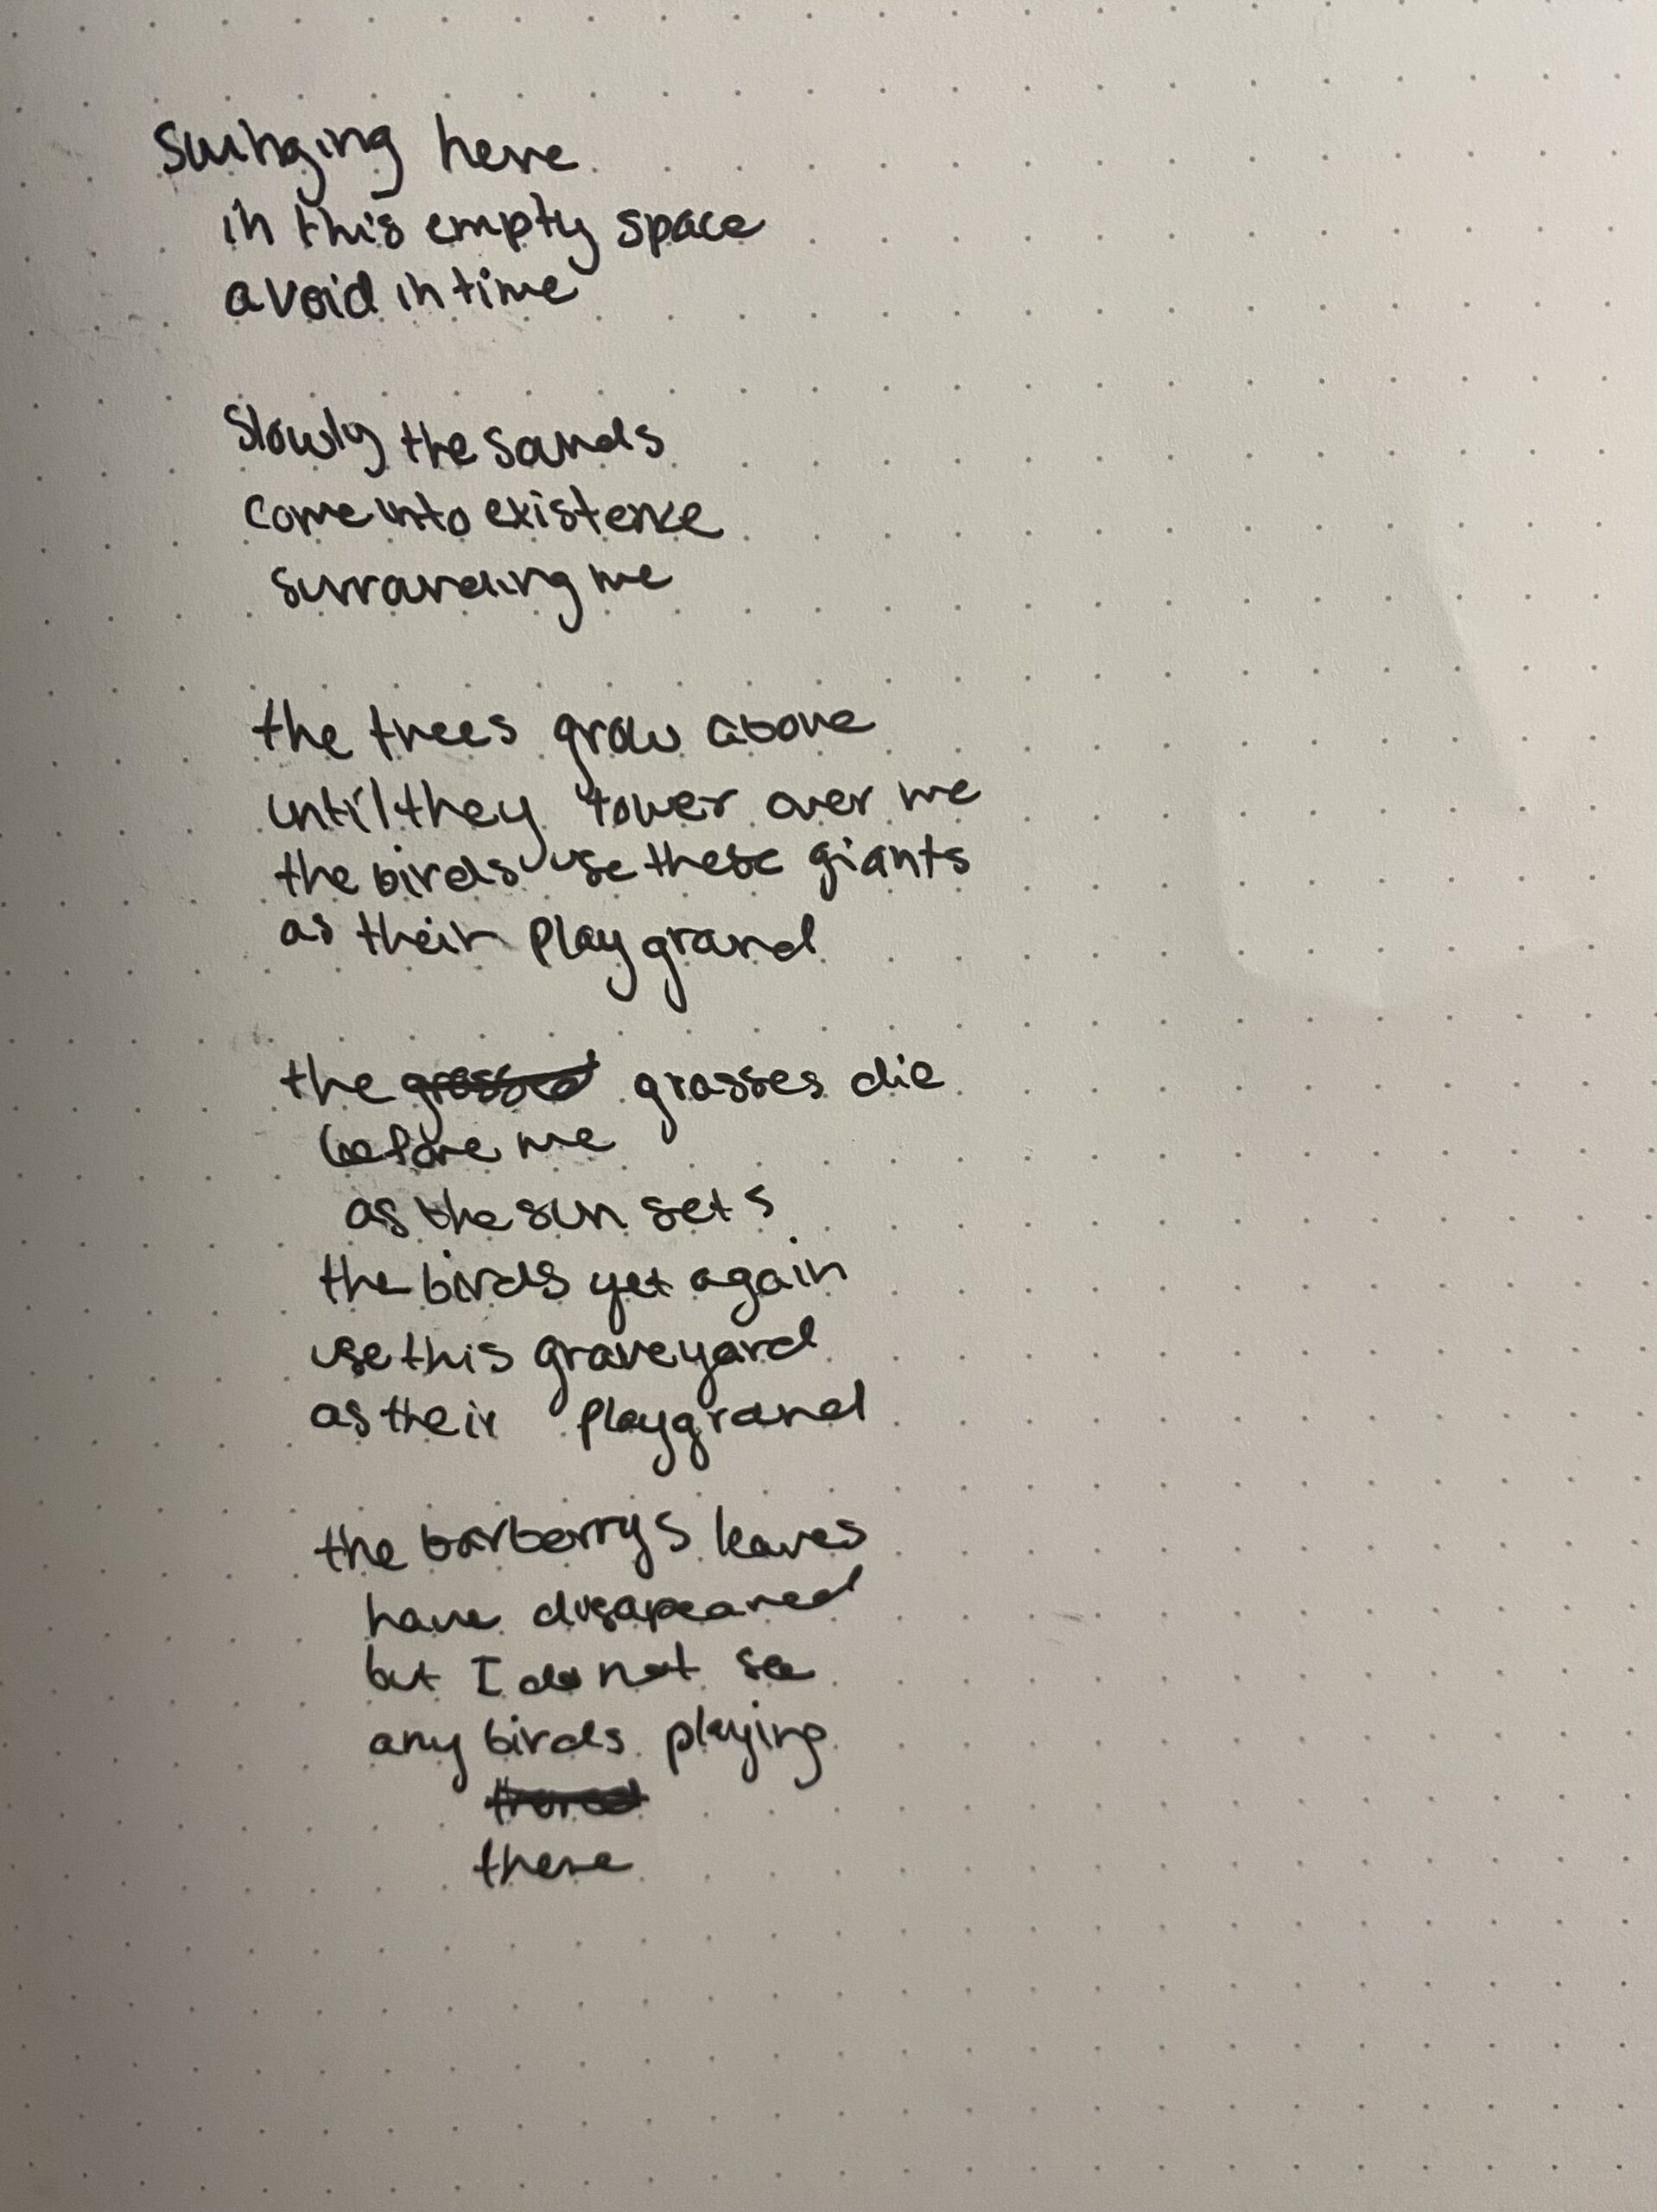 Swinging here
in this empty space
a void in time
Slowly the sands
come into existence
surrounding me
the trees grow above
until they tower over me
the birds use these giants
as their playground
the grasses die
before me
as the sun sets
the birds yet again
use this graveyard
as their playground
the barberrys leaves
have disapeared
but I do not see
any birds playing
there